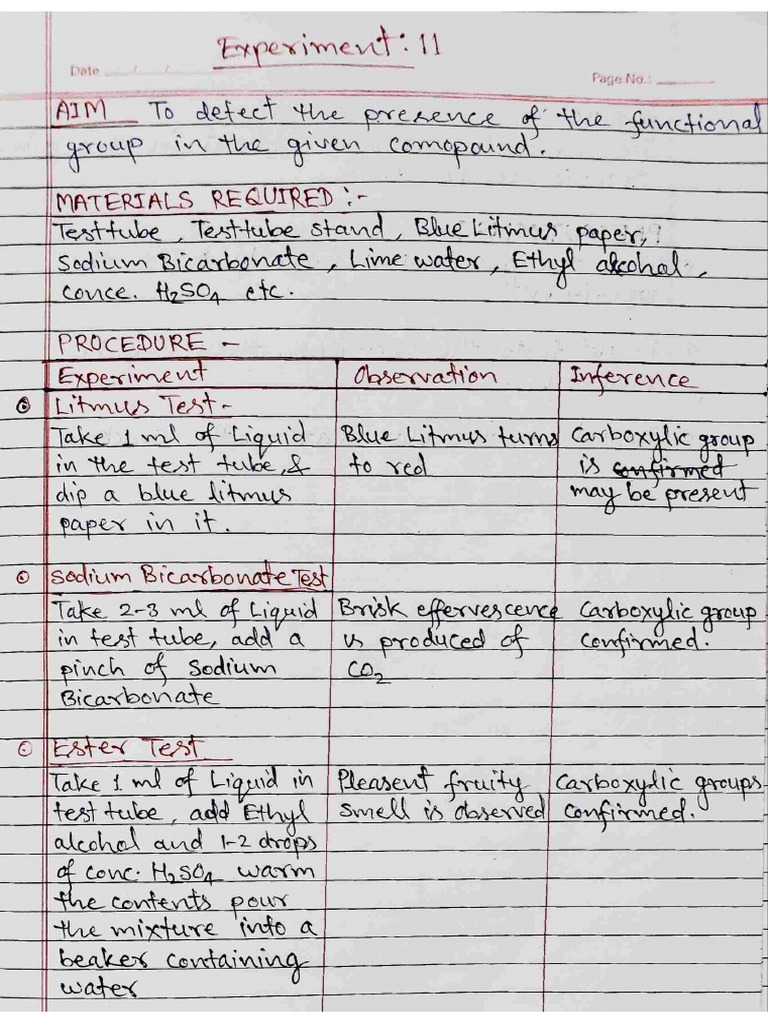 Experiment: 11
Date
Page No.:
AIM To detect the presence of the functional
group in the given comopound.
MATERIALS REQUIRED :-
Test tube, Test tube stand, Blue Litmus paper,
Sodium Bicarbonate, Lime water, Ethyl alcohol,
conce. H₂SO₄ etc.
PROCEDURE -
Experiment Observation Inference
Litmus Test-
Take 1 ml of Liquid Blue Litmus turns Carboxylic group
in the test tube, & to red is confirmed
dip a blue litmus may be present
paper in it.
Sodium Bicarbonate Test
Take 2-3 ml of Liquid Brisk effervescence Carboxylic group
in test tube, add a is produced of confirmed.
pinch of Sodium CO₂
Bicarbonate
Ester Test
Take 1 ml of Liquid in Pleasent fruity Carboxylic groups
test tube, add Ethyl smell is observed confirmed.
alcohol and 1-2 drops
of conc. H₂SO₄ warm
the contents pour
the mixture into a
beaker containing
water